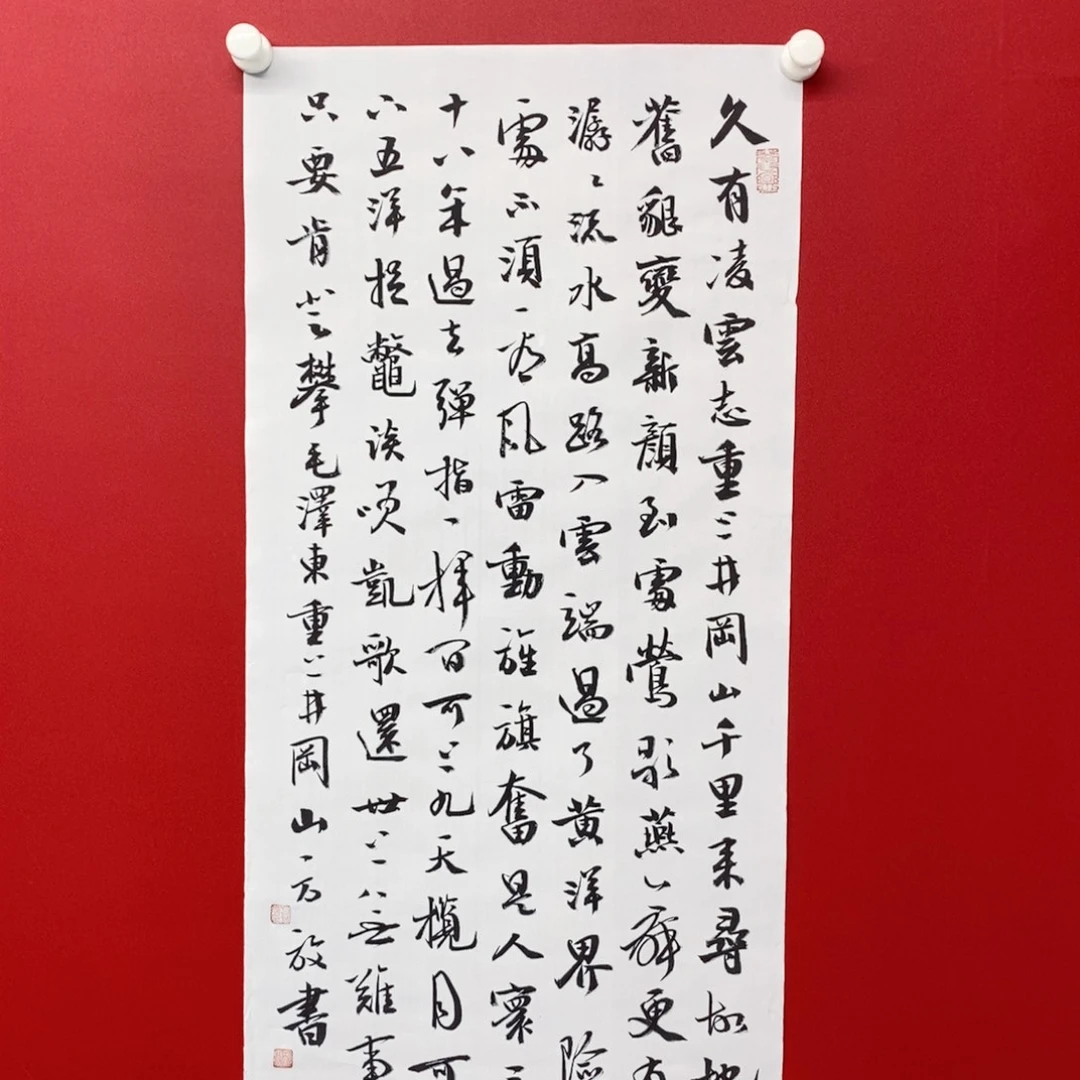 久有凌雲志重上井岡山千里來尋故地
舊貌變新顏到處鶯歌燕舞更有
潺〻流水高路入雲端過了黃洋界險
處不須看風雷動旌旗奮是人寰三
十八年過去彈指一揮間可上九天攬月可
下五洋捉鱉談笑凱歌還世上無難事
只要肯登攀毛澤東重上井岡山方放書